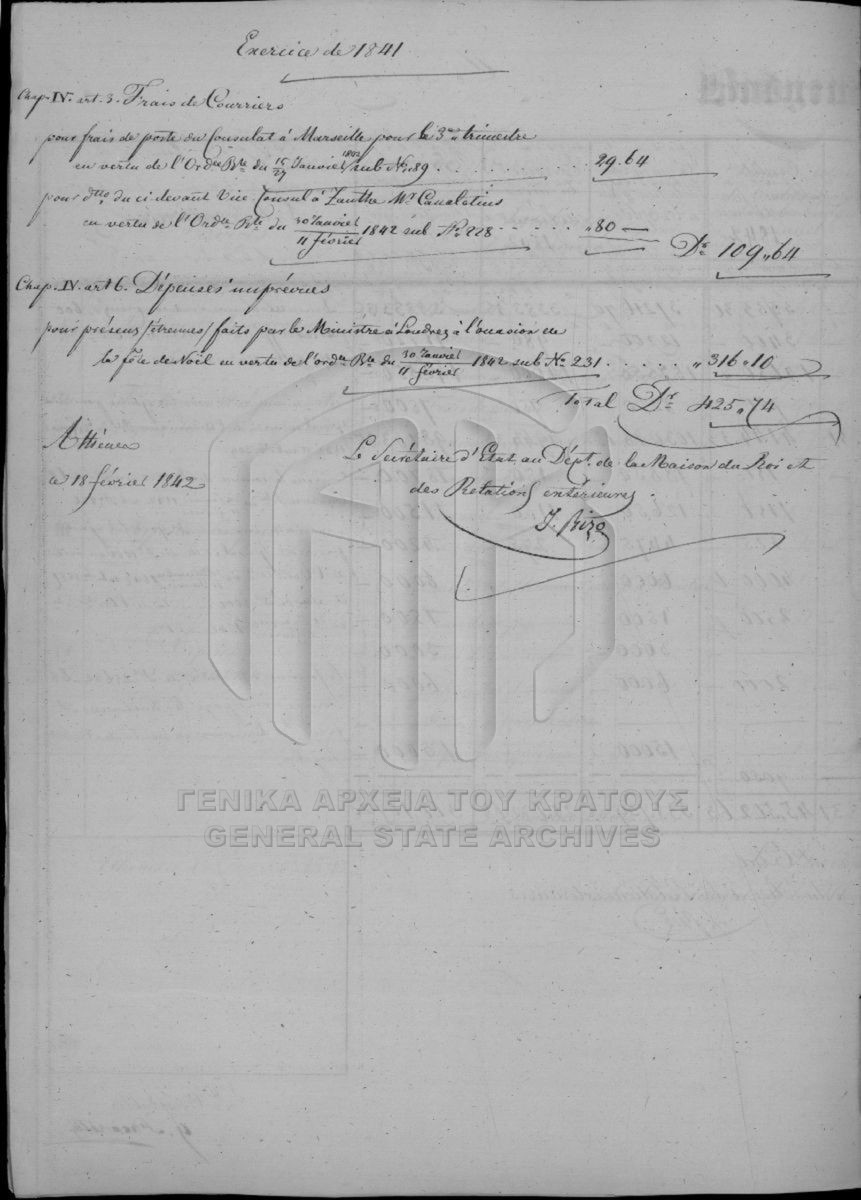 Exercice de 1841
Chap. IV. art. 3. Frais de Courriers
pour frais de poste du Consulat à Marseille pour le 3me trimestre
en vertu de l'Ordce Rle du 15/27 Janvier 1842 sub No 89 . . . . . . 29.64
pour dtto du ci devant Vice Consul à Zanthe Mr
en vertu de l'Ordce Rle du 30 Janvier/11 février 1842 sub No 228 . . . . . . „80 —
Dr 109„64
Chap. IV. art 6. Dépenses imprévues
pour présens /étrennes/ faits par le Ministre à Londres à l'occasion de
la fête de Noël en vertu de l'ordce Rle du 30 Janvier/11 février 1842 sub No 231 . . . . . . „316„10
Total Dr 425„74
Athènes
ce 18 février 1842
Le Secrétaire d'Etat au Dépt. de la Maison du Roi et
des Relations extérieures
J. Rizo
ΓΕΝΙΚΑ ΑΡΧΕΙΑ ΤΟΥ ΚΡΑΤΟΥΣ
GENERAL STATE ARCHIVES